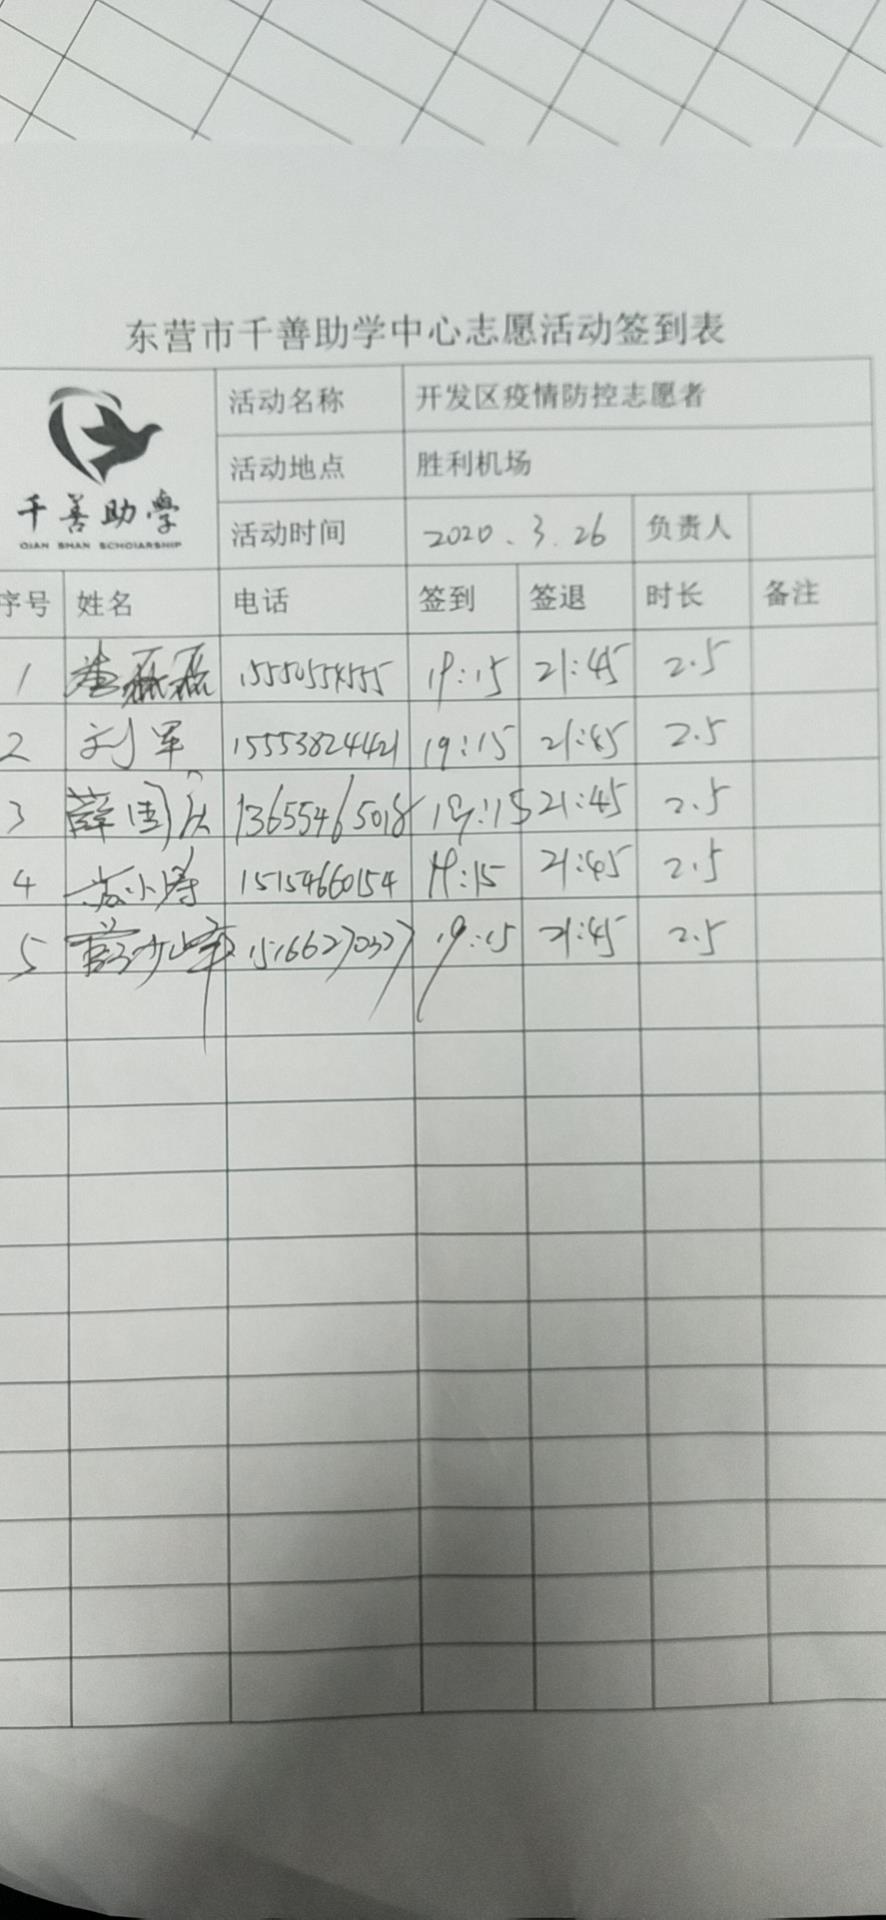 东营市千善助学中心志愿活动签到表
千善助學
QIAN SHAN SCHOLARSHIP
活动名称 开发区疫情防控志愿者
活动地点 胜利机场
活动时间 2020.3.26 负责人
序号 姓名 电话 签到 签退 时长 备注
1 磊磊 19:15 21:45 2.5
2 刘军 15553824421 19:15 21:45 2.5
3 薛国庆 13655465018 19:15 21:45 2.5
4 苏小涛 15154660154 19:15 21:45 2.5
5 15166270327 19:15 21:45 2.5